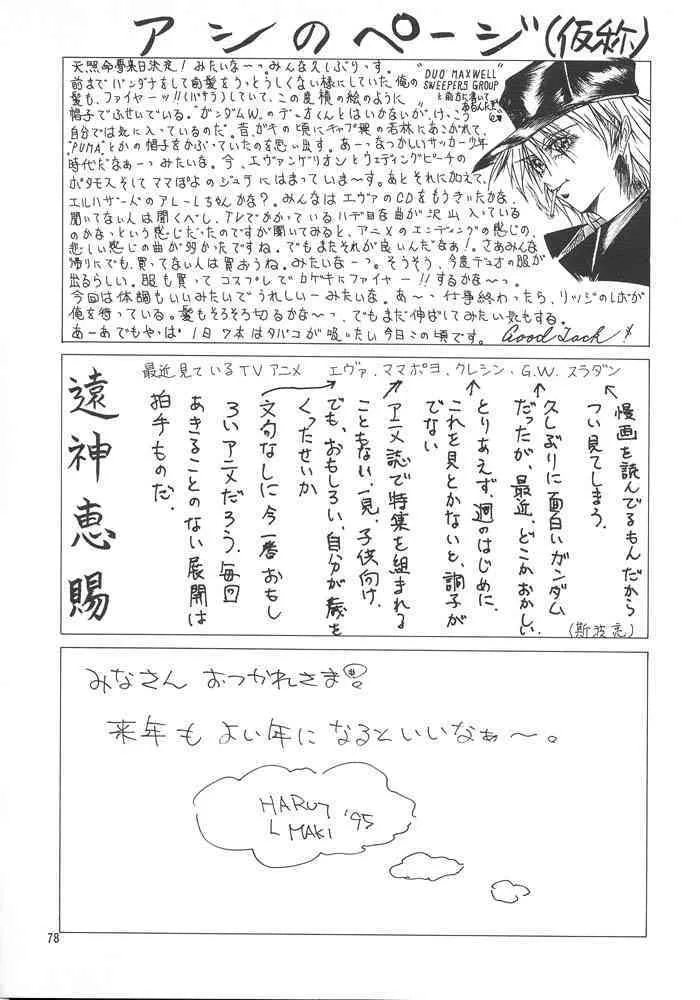 アシのページ(仮称)
天照命専集日決定!みたいなーっ。みんな久しぶりっす。
前までバンダナをして前髪をうっとうしくない様にしていた俺の
髪も、ファイヤーッ!!(バサラ)していて、この度横の絵のように
帽子でふせいでいる。"ガンダムW"のデュオくんとはいかないが、けっこう
自分では気に入っているのだ。昔、ガキの頃にキャプ翼の若林にあこがれて、
"PUMA"とかの帽子をかぶっていたのを思い出す。あーっなつかしいサッカー少年
時代だなぁーっみたいな。今、エヴァンゲリオンとウェディングピーチの
ポタモスそしてママぽよのジュテにはまっていま〜す。あとそれに加えて、
エルハザードのアレーレちゃんかな?。みんなはエヴァのCDをもうきいたかな、
聞いてない人は聞くべし、TVでかかっているハデ目な曲が沢山入っている
のかなっという感じだったのですが聞いてみると、アニメのエンディングの感じの、
悲しい感じの曲が多かったですね。でもまたそれが良いんだなぁ!。さあみんな
帰りにでも、買ってない人は買おうね。みたいなーっ。そうそう、今度デュオの服が
出るらしい。服も買ってコスプレでカゲキにファイヤー!!するかな〜っ。
今回は体調もいいみたいでうれしいーみたいな。あ〜っ仕事終わったら、リッジのレボが
俺を待っている。髪もそろそろ切るかな〜っ、でもまだ伸ばしてみたい気もする。
あーあでもやっぱ1日7本はタバコが吸いたい今日この頃です。Good Luck!
"DUO MAXWELL"
SWEEPERS GROUP
と前方に書いて
あるんだぜ
最近見ているTVアニメ エヴァ、ママポヨ、クレシン、G.W. スラダン
漫画を読んでるもんだから
つい見てしまう。
久しぶりに面白いガンダム
だったが、最近、どこかおかしい。
とりあえず、週のはじめに、
これを見とかないと、調子が
でない
アニメ誌で特集を組まれる
こともない、一見、子供向け、
でも、おもしろい、自分が歳を
くったせいか
文句なしに今一番おもし
ろいアニメだろう。毎回
あきることのない展開は
拍手ものだ。
(斯波亮)
遠神恵賜
みなさん おつかれさま
来年も よい年に なるといいなぁ〜。
HARUY
L MAKI '95
78